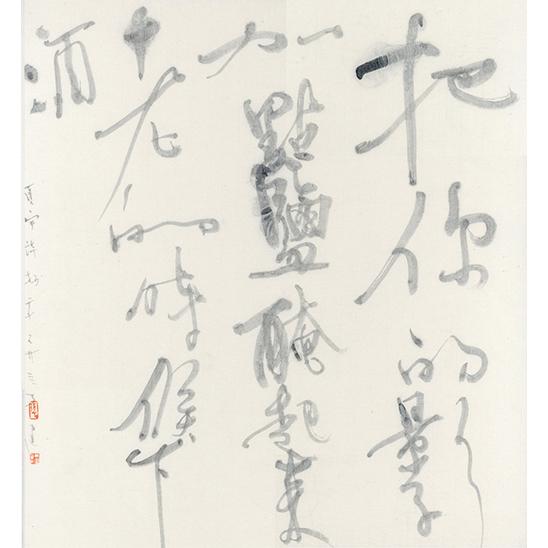 把你的影子
加點鹽醃起來
老的時候下
酒
夏宇詩